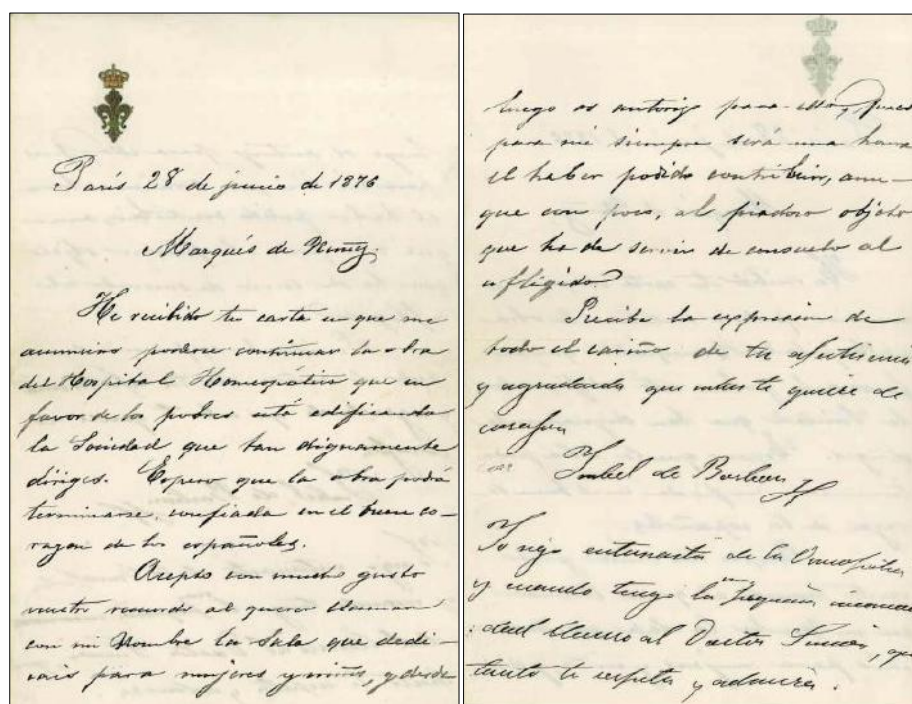 París 28 de junio de 1876
Marqués de Nuñez
He recibido tu carta en que me
anuncias poderse continuar la obra
del Hospital Homeopático que en
favor de los pobres está edificando
la Sociedad que tan dignamente
diriges. Espero que la obra podrá
terminarse, confiada en el buen co-
razon de los españoles.
Acepto con mucho gusto
vuestro recuerdo al querer llamar
con mi nombre la Sala que dedi-
cais para mujeres y niños, y desde
luego os autorizo para ello, pues
para mi siempre será una honra
el haber podido contribuir, aun-
que con poco, al piadoso objeto
que ha de servir de consuelo al
afligido.
Recibe la expresion de
todo el cariño de tu afectísima
y agradecida que te quiere de
corazon
Isabel de Borbon
Yo sigo entusiasta de la Omeopatia
y cuando tengo la pequeña
llamo al Doctor que
tanto te respeta y admira.